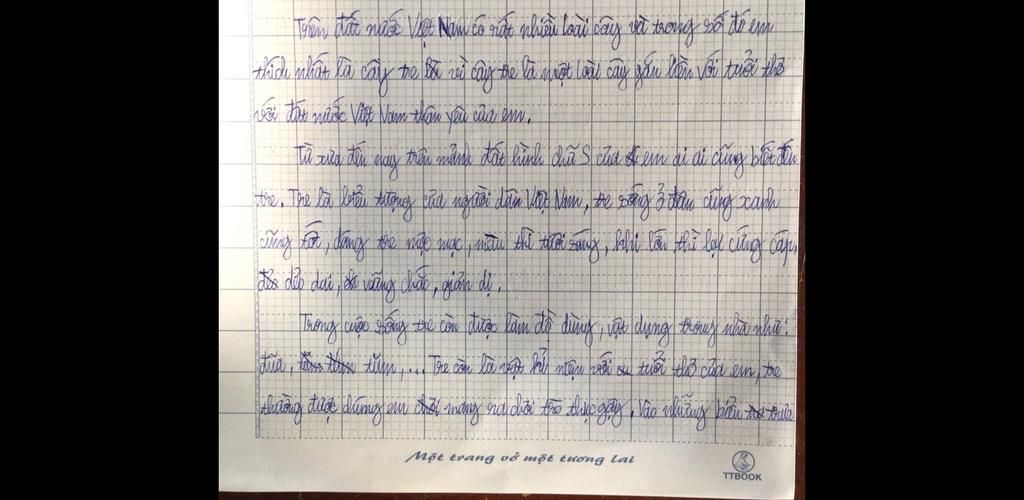 Trên đất nước Việt Nam có rất nhiều loài cây và trong số đó em
thích nhất là cây tre vì cây tre là một loài cây gắn liền với tuổi thơ
với đất nước Việt Nam thân yêu của em.
Từ xưa đến nay trên mảnh đất hình chữ S của em đi ai cũng biết đến
tre. Tre là biểu tượng của người dân Việt Nam, tre sống ở đâu cũng xanh
cũng tốt, dáng tre mộc mạc, màu thì tươi sáng, khi lớn thì lại cứng cáp,
dẻo dai, vững chắc, giản dị.
Trong cuộc sống tre còn được làm đồ dùng, vật dụng trong nhà như:
đũa, tăm,... Tre còn là vật kỉ niệm với tuổi thơ của em, tre
thường được dùng em mang ra chơi trò gậy. Vào những buổi trưa
Một trang vở một tương lai
TTBOOK